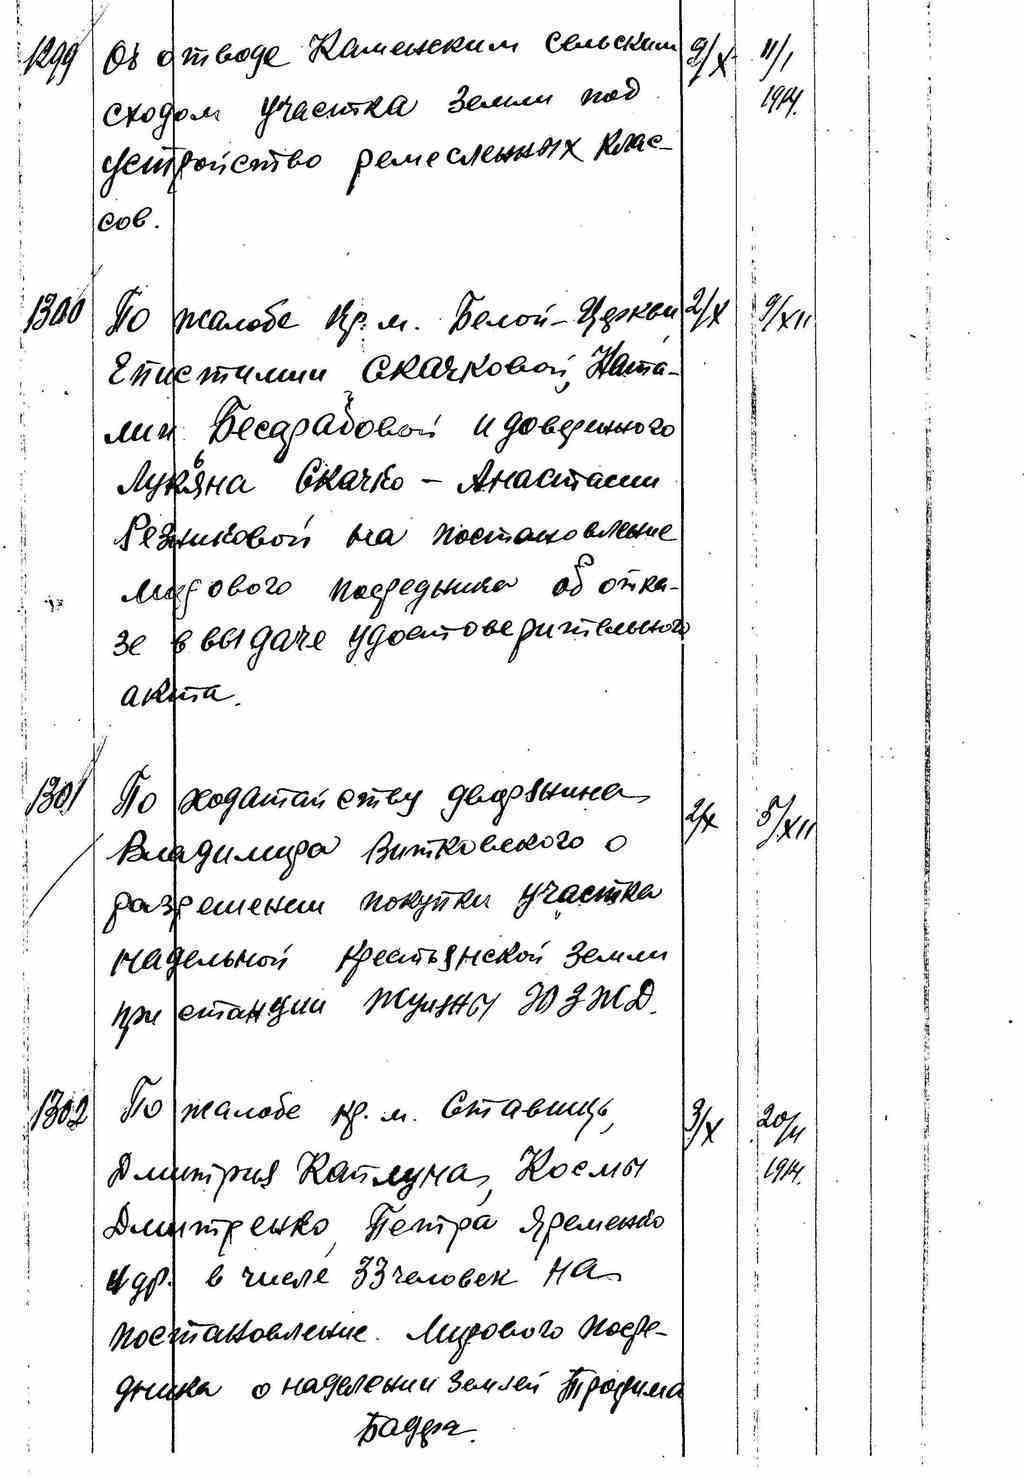 1299 Об отводе Каменским сельским 9/X 11/I
сходом участка земли под 1914.
устройство ремесленных клас-
сов.
1300 По жалобе кр. м. Белой-Церкви 2/X 9/XII
Епистимии Скачковой, Ната-
лии Бесарабовой и доверенного
Лукьяна Скачко - Анастасии
Резниковой на постановление
мирового посредника об отка-
зе в выдаче удостоверительного
акта.
1301 По ходатайству дворянина 2/X 5/XII
Владимира Витковского о
разрешении покупки участка
надельной крестьянской земли
при станции Жуляны ЮЗЖД.
1302 По жалобе кр. м. Ставищ, 3/X 20/II
Дмитрия Каплуна, Космы 1914.
Дмитренко, Петра Яременко
и др. в числе 33 человек на
постановление Мирового посре-
дника о наделении землей Трофима